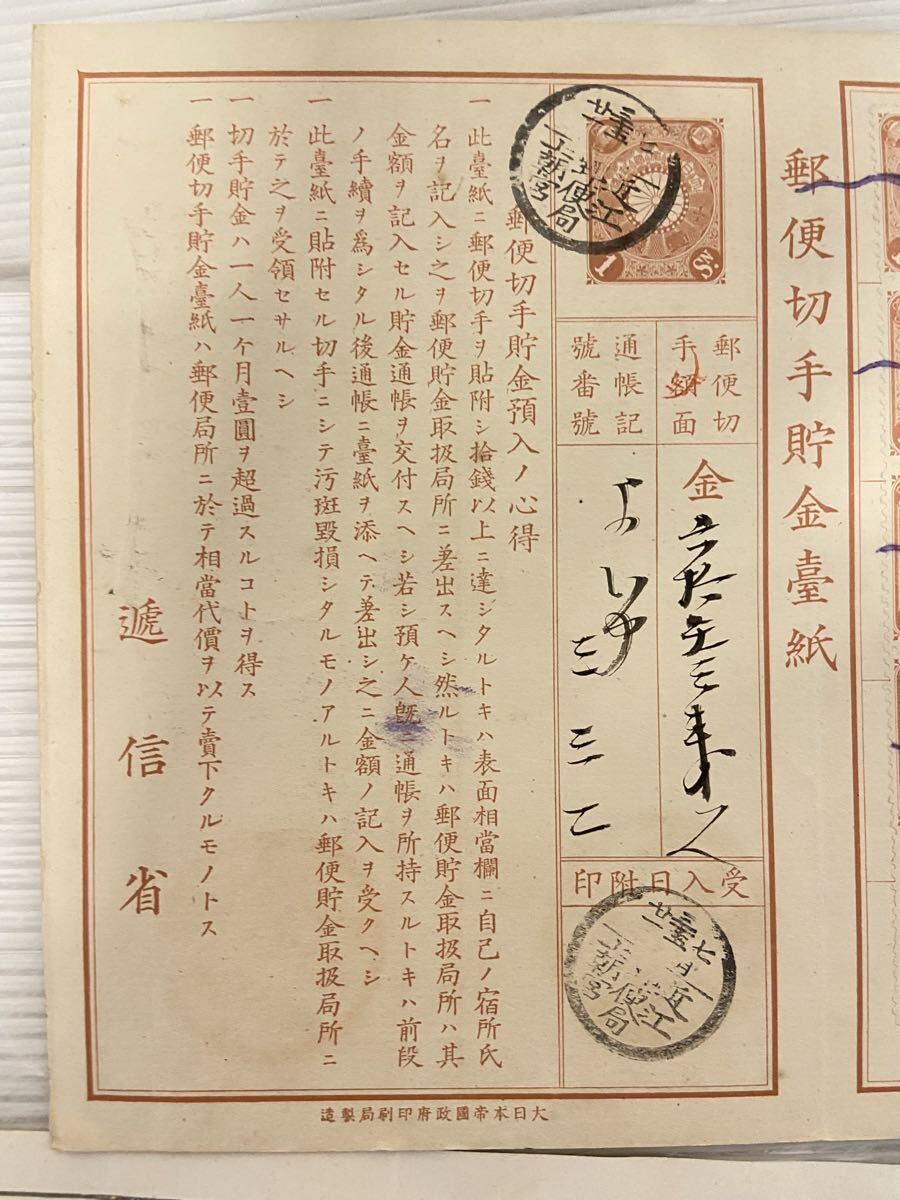 郵便切手貯金臺紙
1
Sn.
郵便切手額面
金
通帳記號番號
三三二
受入日附印
郵便切手貯金預入ノ心得
一此臺紙ニ郵便切手ヲ貼附シ拾錢以上ニ達シタルトキハ表面相當欄ニ自己ノ宿所氏
名ヲ記入シ之ヲ郵便貯金取扱局所ニ差出スヘシ然ルトキハ郵便貯金取扱局所ハ其
金額ヲ記入セル貯金通帳ヲ交付スヘシ若シ預ケ人既ニ通帳ヲ所持スルトキハ前段
ノ手續ヲ爲シタル後通帳ニ臺紙ヲ添ヘテ差出シ之ニ金額ノ記入ヲ受クヘシ
一此臺紙ニ貼附セル切手ニシテ汚斑毀損シタルモノアルトキハ郵便貯金取扱局所ニ
於テ之ヲ受領セサルヘシ
一切手貯金ハ一人一ケ月壹圓ヲ超過スルコトヲ得ス
一郵便切手貯金臺紙ハ郵便局所ニ於テ相當代價ヲ以テ賣下クルモノトス
遞信省
大日本帝國政府印刷局製造